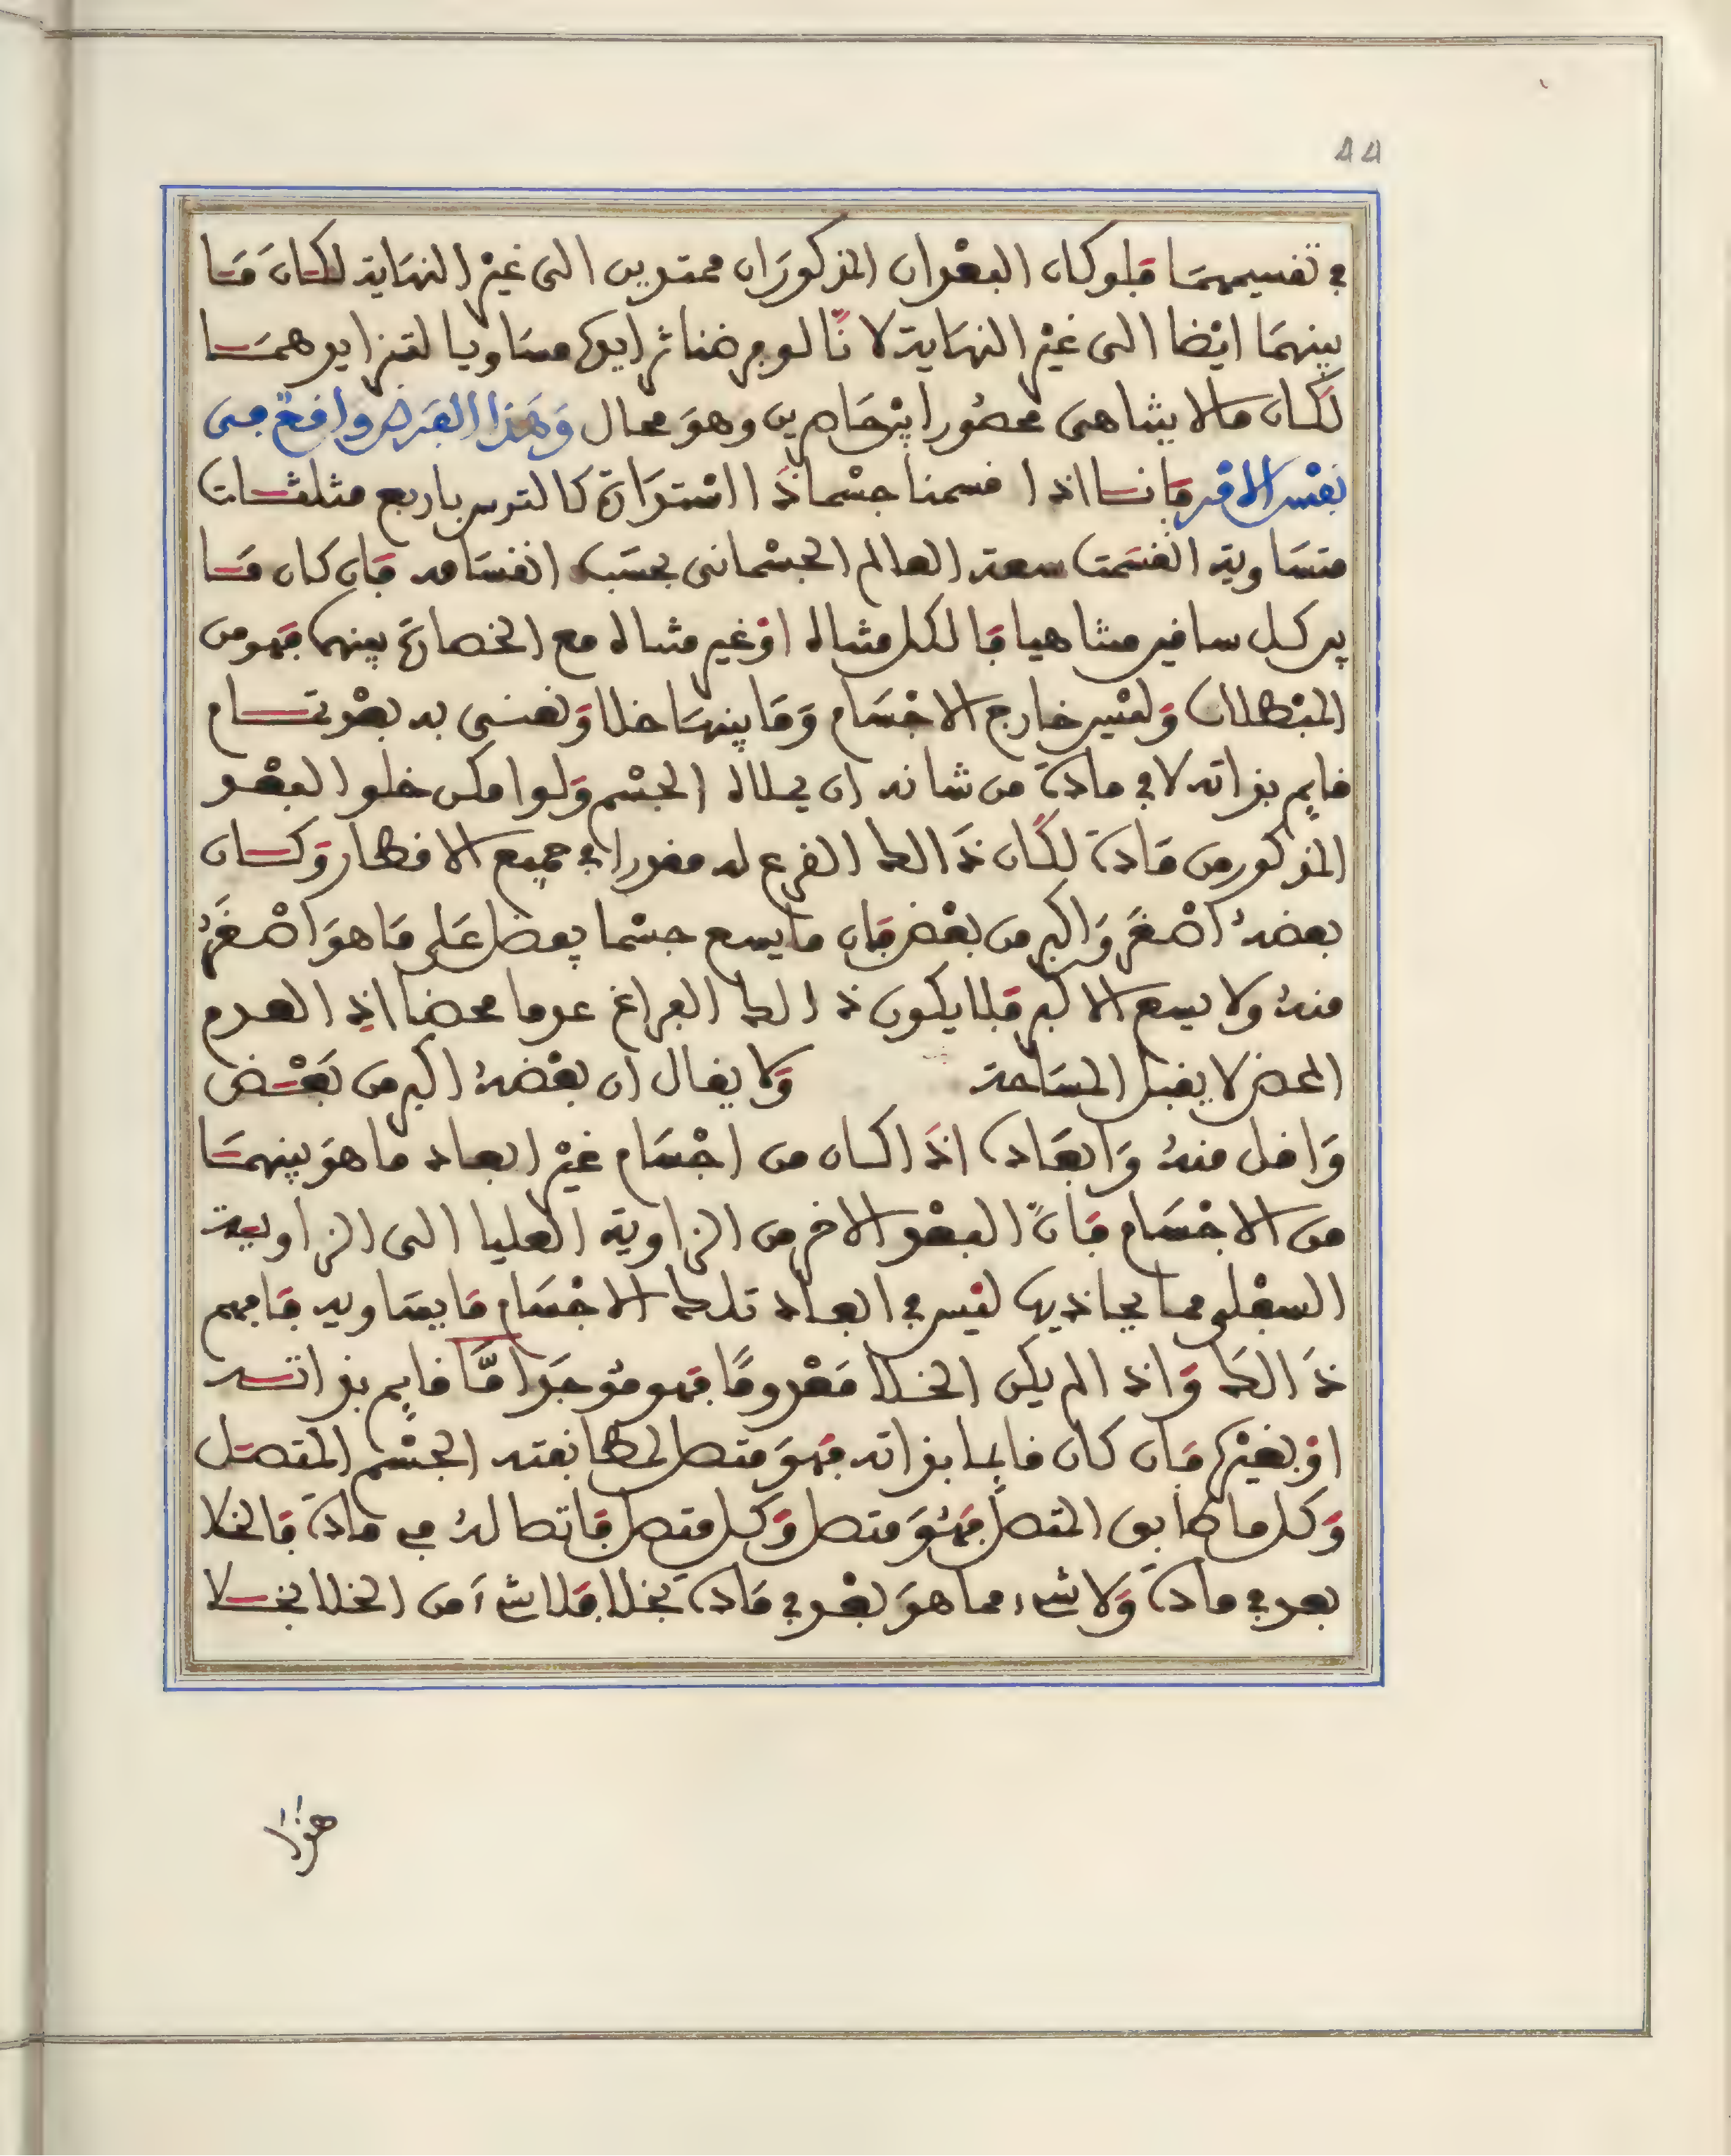 44
في تقسيمهما فلو كان البعدان المذكوران ممتدين الى غير النهاية لكان ما
بينهما ايضا الى غير النهاية لانا لو فرضنا تزايدها مساويا لتزايدهما
لكان مالا يتناهى محصورا بين حاصرين وهو محال وهذا الفرض واقع في
نفس الامر فانا اذا قسمنا جسما ذا استدارة كالترس باربع مثلثات
متساوية انقسمت سعة العالم الجسماني بحسب انقسامه فان كان ما
بين كل ساقين متناهيا فالكل مثاله او غير مثاله مع انحصاره بينهما فهو من
المبطلان وليس خارج الاجسام وما بينها خلا ونعنى به بعد تام
قايم بذاته لا في مادة من شانه ان يملاه الجسم ولو امكن خلو البعد
المذكور من مادة لكان ذالك الفرع له مقدرا في جميع الاقطار وكان
بعضه اصغر واكبر من بعض فان ما يسع جسما يفضل على ما هو اصغر
منه ولا يسع الاكبر فلا يكون ذالك الفراغ عدما محضا اذ العدم
المحض لا يقبل المساحة ولا يقال ان بعضه اكبر من بعض
واقل منه وابعاده اذا كان من اجسام غير ابعاد ما هو بينهما
من الاجسام فان البعد الاخر من الزاوية العليا الى الزاوية
السفلى مما يحاذيها ليس في ابعاد تلك الاجسام ما يساويه فافهم
ذالك واذا لم يكن الخلا معدوما فهو موجد اما قايم بذاته
او بغيره فان كان قايما بذاته فهو متصل لمطابقته الجسم المتصل
وكل ما طابق المتصل فهو متصل وكل متصل فاتصاله في مادة فالخلا
بعد في مادة ولا شيء مما هو بعد في مادة بخلا فلا شيء من الخلا بخلا
هذا